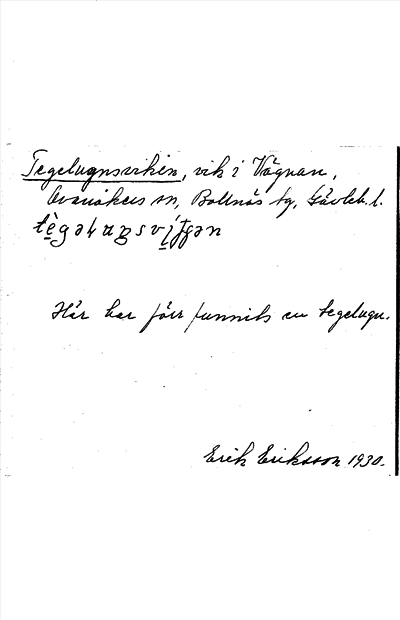 Tegelugnsviken, vik i Vågnan,
Ovanåkers sn, Bollnäs tg, Gävleb. l.
Här har förr funnits en tegelugn.
Erik Eriksson 1930.